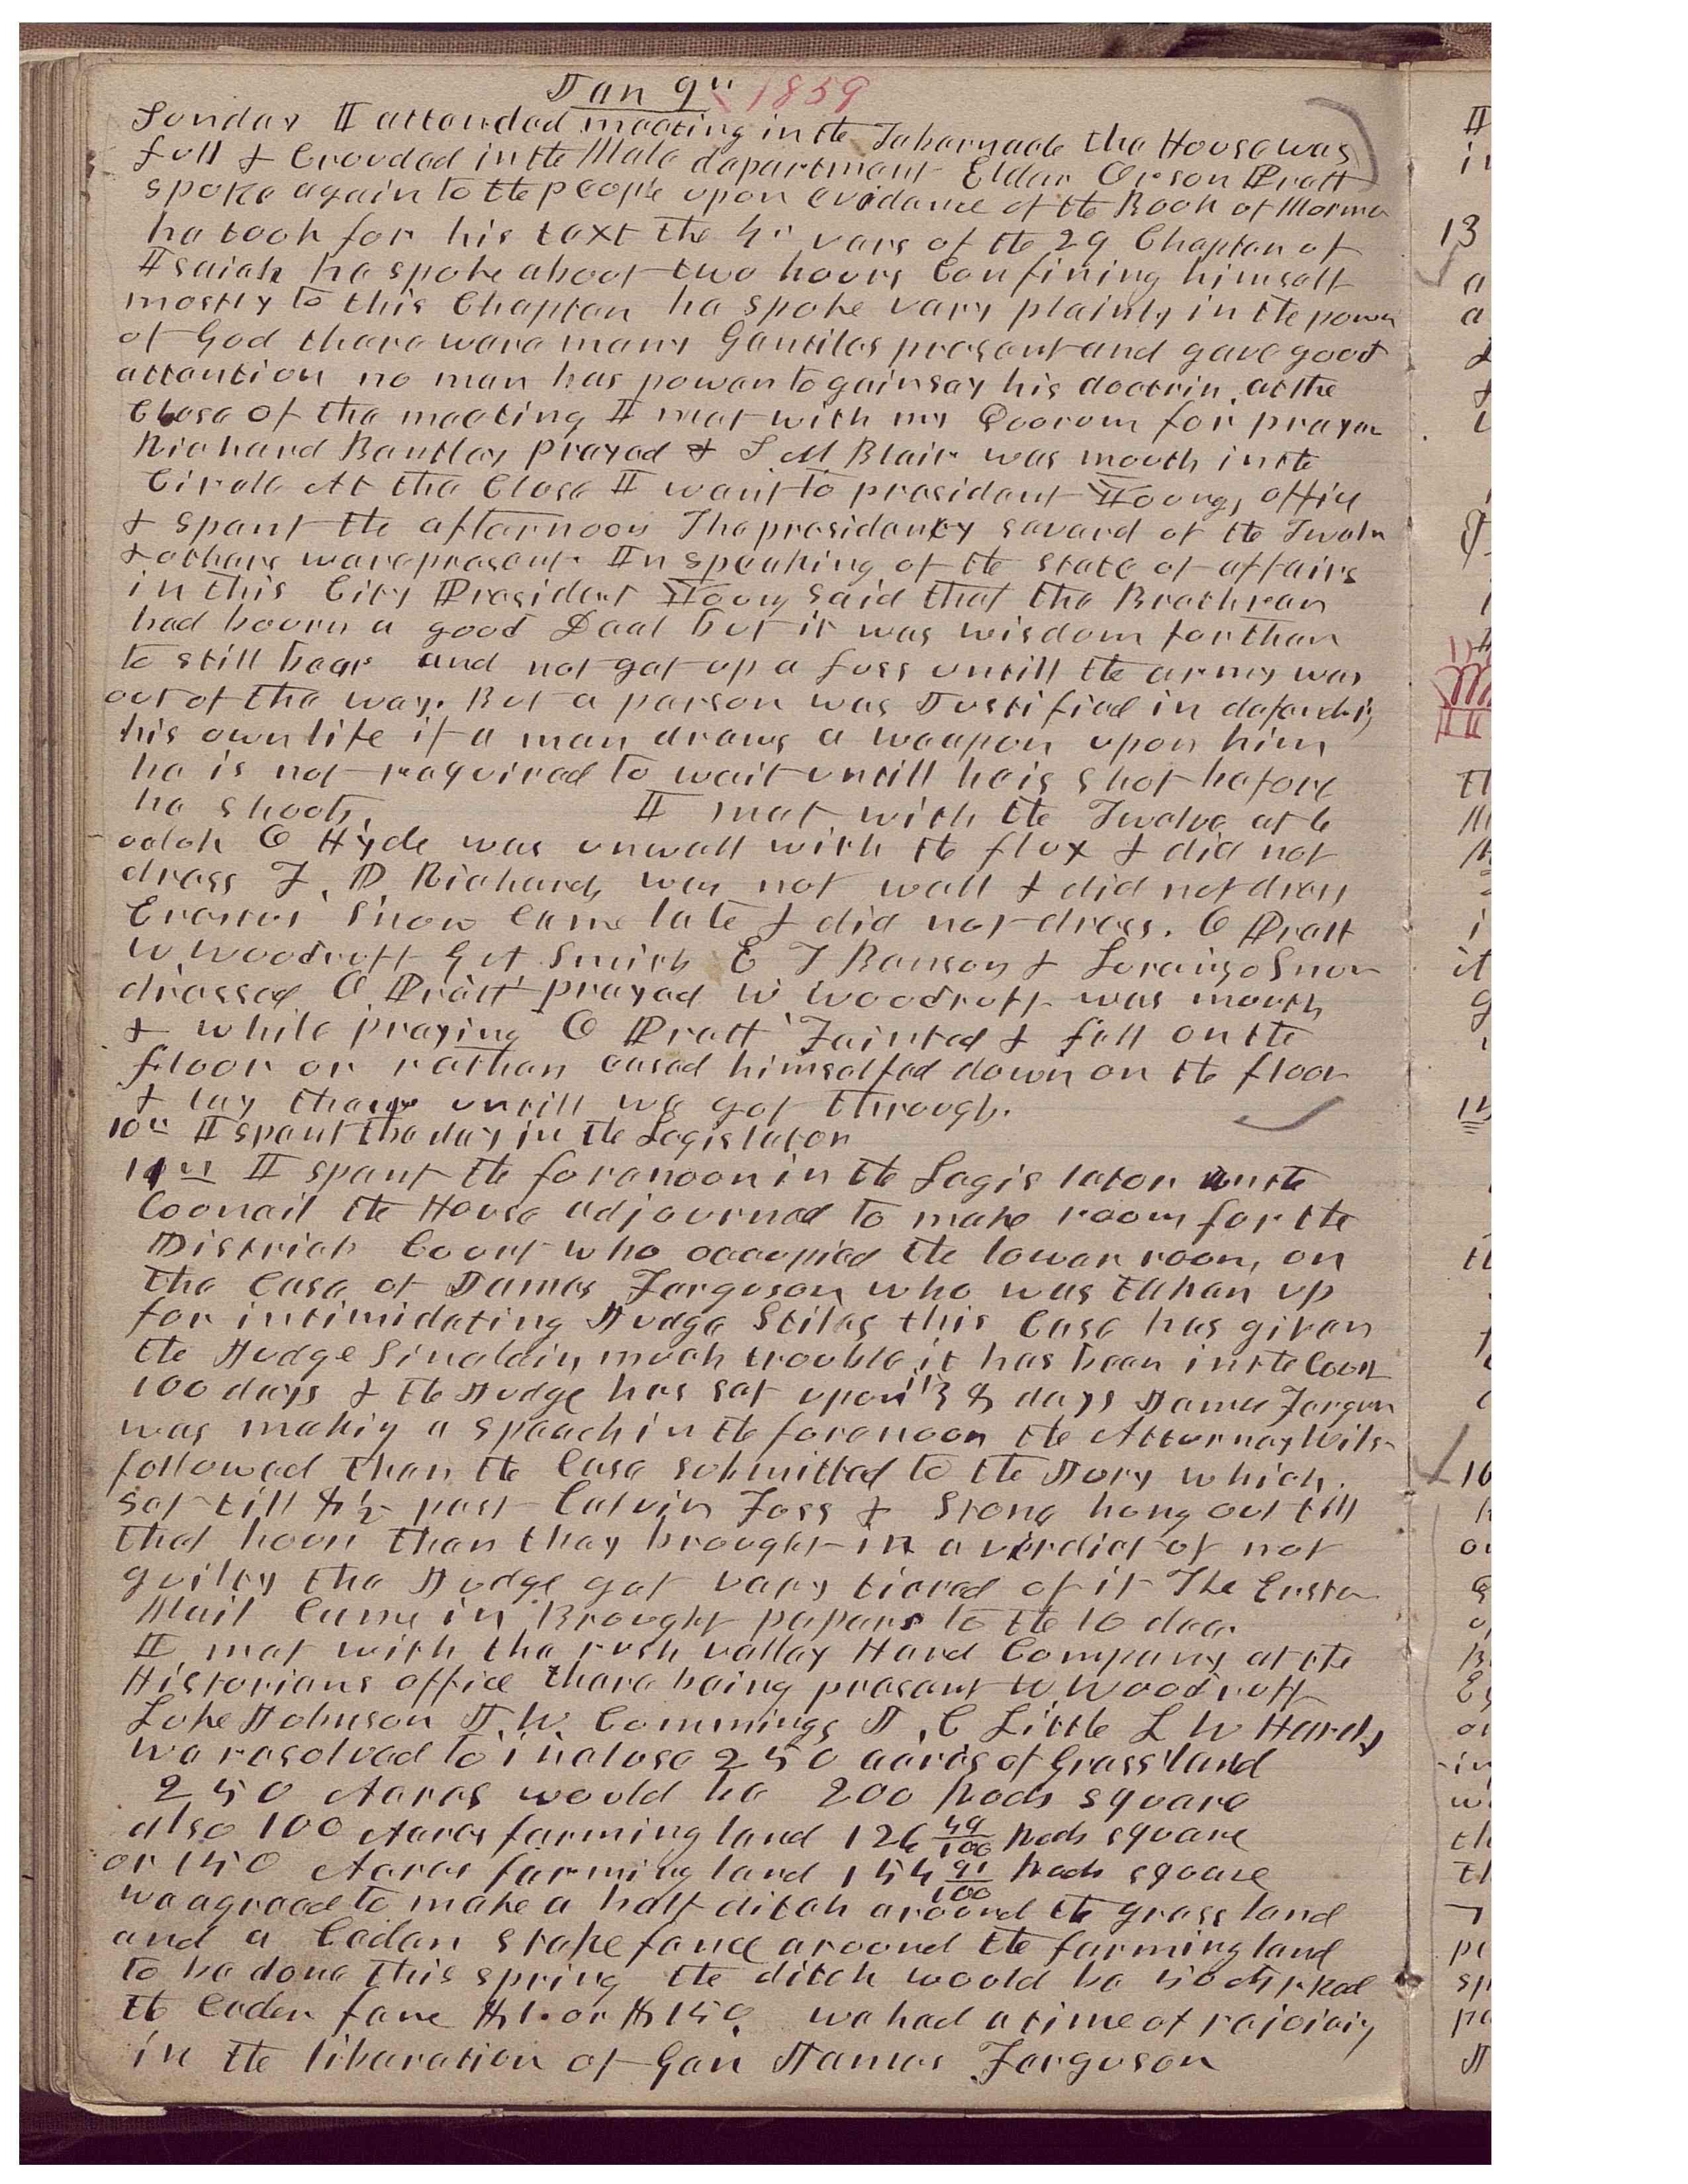 Jan 9th 1859
Sunday I attended meeting in the Tabernacle the House was
full & Crouded in the Male department Elder Orson Pratt
spoke again to the people upon evidence of the Book of Mormon
he took for his text the 4th vers of the 29 Chapter of
Isaiah he spoke about two hours Confining himself
mostly to this Chapter he spoke very plainly in the power
of God there were many Gentiles present and gave good
attention no man has power to gainsay his doctrin. at the
Close of the meeting I met with my Quorum for prayer
Richard Bentley Prayed & S M Blair was mouth in the
Circle At the Close I went to president Youngs office
& spent the afternoon The presidency several of the Twelve
& others were present. In speaking of the state of affairs
in this City President Young said that the Brethren
had bourn a good Deal but it was wisdom for them
to still bear and not get up a fuss untill the army was
out of the way. But a person was Justified in defending
his own life if a man draws a weapon upon him
he is not required to wait untill he is shot before
he shoots. I met with the Twelve at 6
oclok O Hyde was unwell with the flux & did not
dress F. D. Richards was not well & did not dress
Erastus Snow Came late & did not dress. O Pratt
W Woodruff G A Smith E T Benson & Lorenzo Snow
dressed O. Pratt prayed W Woodruff was mouth
& while praying O Pratt Fainted & fell on the
floor or rather eased himselfed down on the floor
& lay there untill we got through.
10th I spent the day in the Legislator
11th I spent the forenoon in the Legislator in the
Council the House adjourned to make room for the
District Court who occupied the lower room, on
the Case of James Ferguson who was taken up
for intimidating Judge Stiles this Case has given
the Judge Sinclair, much trouble it has been in the Court
100 days & the Judge has sat upon it 38 days James Ferguson
was making a speech in the forenoon the Atturney Wilson
followed then the Case submitted to the Jury which
sat till 8 1/2 past Calvin Foss & Stone hung out till
that hour then they brought in a verdict of not
guilty the Judge got very tiered of it The Eastern
Mail Came in Brought papers to the 10 dec.
I met with the rush valley Herd Company at the
Historians office there being present W. Woodruff
Luke Johnson J. W. Cummings J. C Little L W Hardy
we resolved to inclose 250 acres of Grass land
250 Acres would be 200 Rods square
also 100 Acres farming land 126 49/100 Rods square
or 150 Acres farming land 154 91/100 Rods square
we agreed to make a half ditch around the grass land
and a Cedar stake fence around the farming land
to be done this spring the ditch would be 50 cts pr Rod
the Ceder fence $1. or $1.50. we had a time of rejoicing
in the liberation of Gen James Ferguson